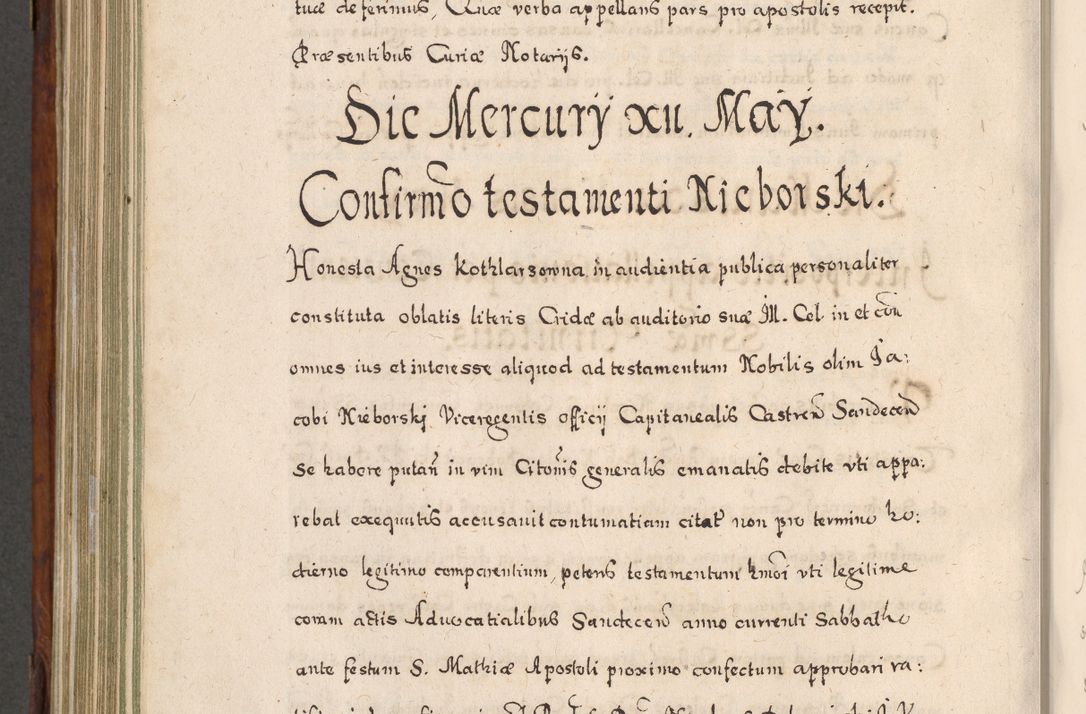 tuæ deferimus, Quæ verba appellans pars pro apostolis recepit.
Præsentibus Curiæ Notarijs.
Die Mercurÿ xii. Maÿ.
Confirmo testamenti Nieborski.
Honesta Agnes Kotzlarzowna in audientia publica personaliter
constituta oblatis literis Cridæ ab auditorio suæ Ill. Cel. in et con
omnes ius et interesse aliquod ad testamentum Nobilis olim Ja:
cobi Nieborskj Viceregentis officij Capitanealis Castren Sandecen
se habere putan in vim Citonis generalis emanatis debite vti appa:
rebat exequutis accusauit contumatiam citat non pro termino ho:
dierno legitimo comparentium, petens testamentum hmoi vti legitime
coram actis Aduocatialibus Sandecen anno currenti Sabbatho
ante festum S. Mathiæ Apostoli proximo confectum approbari ra: